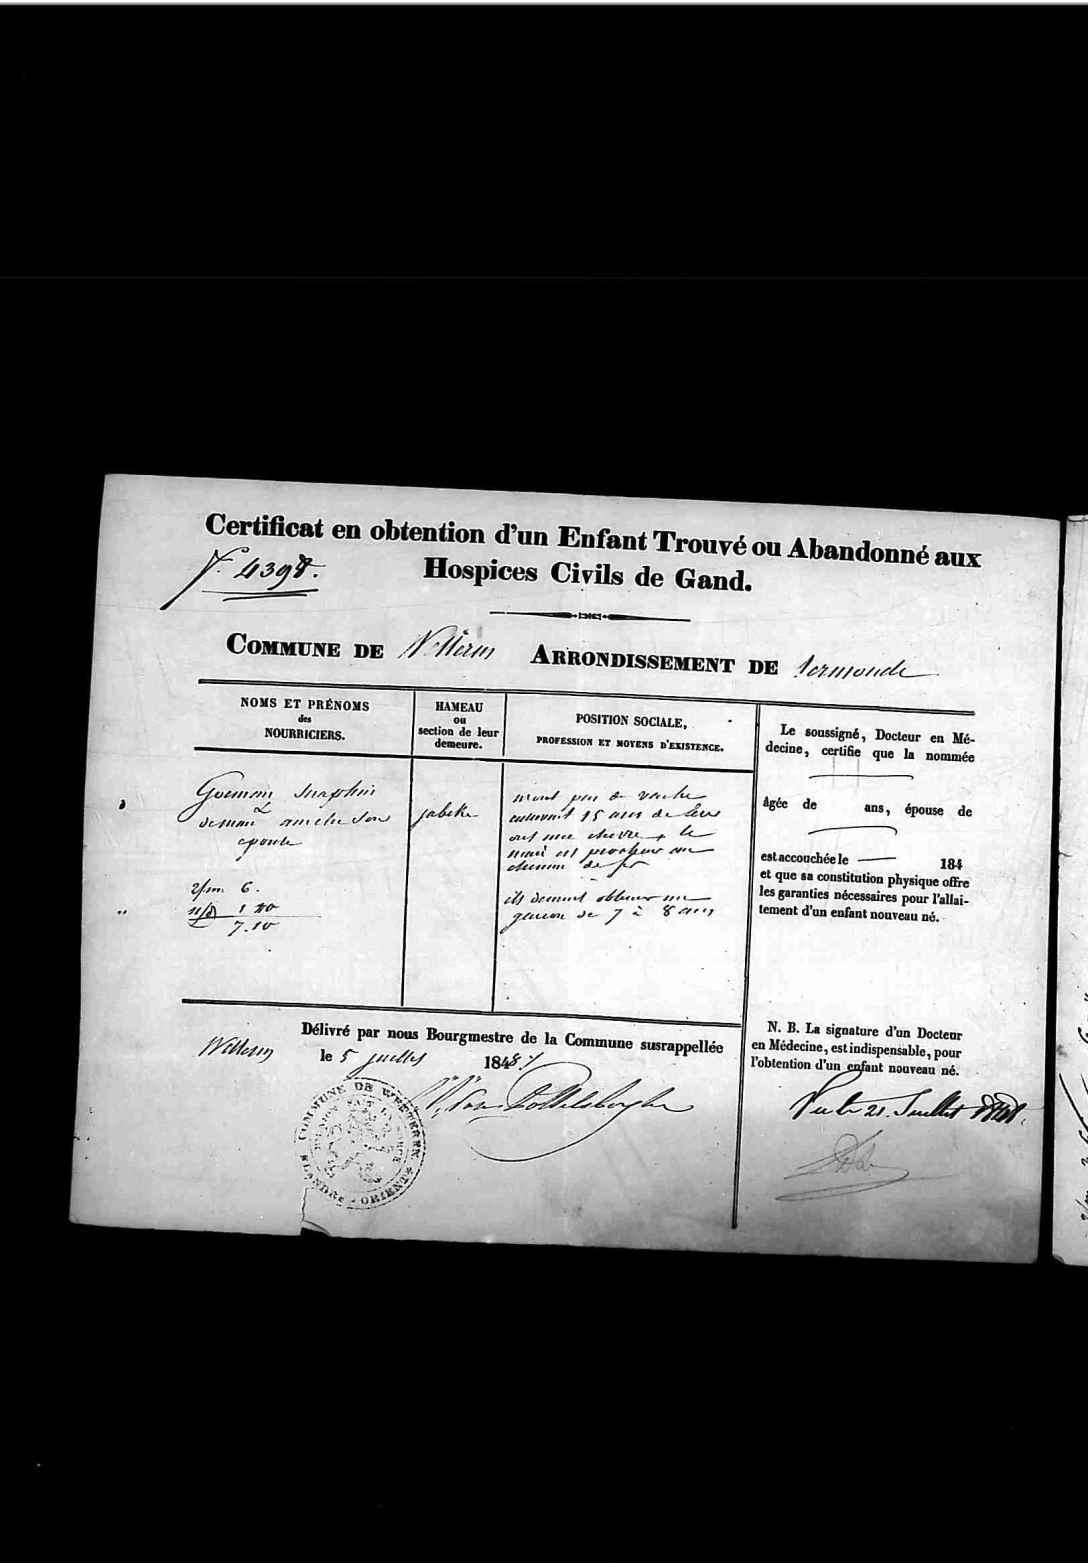 Certificat en obtention d'un Enfant Trouvé ou Abandonné aux
Hospices Civils de Gand.
COMMUNE DE Wetteren ARRONDISSEMENT DE termonde
NOMS ET PRÉNOMS
des
NOURRICIERS.
HAMEAU
ou
section de leur
demeure.
POSITION SOCIALE,
PROFESSION ET MOYENS D'EXISTENCE.
Goeman Seraphin
&
amelie son
epouse
6.
7.10
jabeke
n'ont pas de vache
15 ans de
ont une chevre, le
mari est au
chemin de fer
ils desirent obtenir un
garcon de 7 à 8 ans
Le soussigné, Docteur en Mé-
decine, certifie que la nommée
âgée de ans, épouse de
est accouchée le 184
et que sa constitution physique offre
les garanties nécessaires pour l'allai-
tement d'un enfant nouveau né.
Délivré par nous Bourgmestre de la Commune susrappellée
Wetteren le 5 juillet 1848
N. B. La signature d'un Docteur
en Médecine, est indispensable, pour
l'obtention d'un enfant nouveau né.
COMMUNE DE WETTEREN
L'UNION FAIT LA FORCE
FLANDRE ORIENT.
Vu le 21. Juillet 1848.